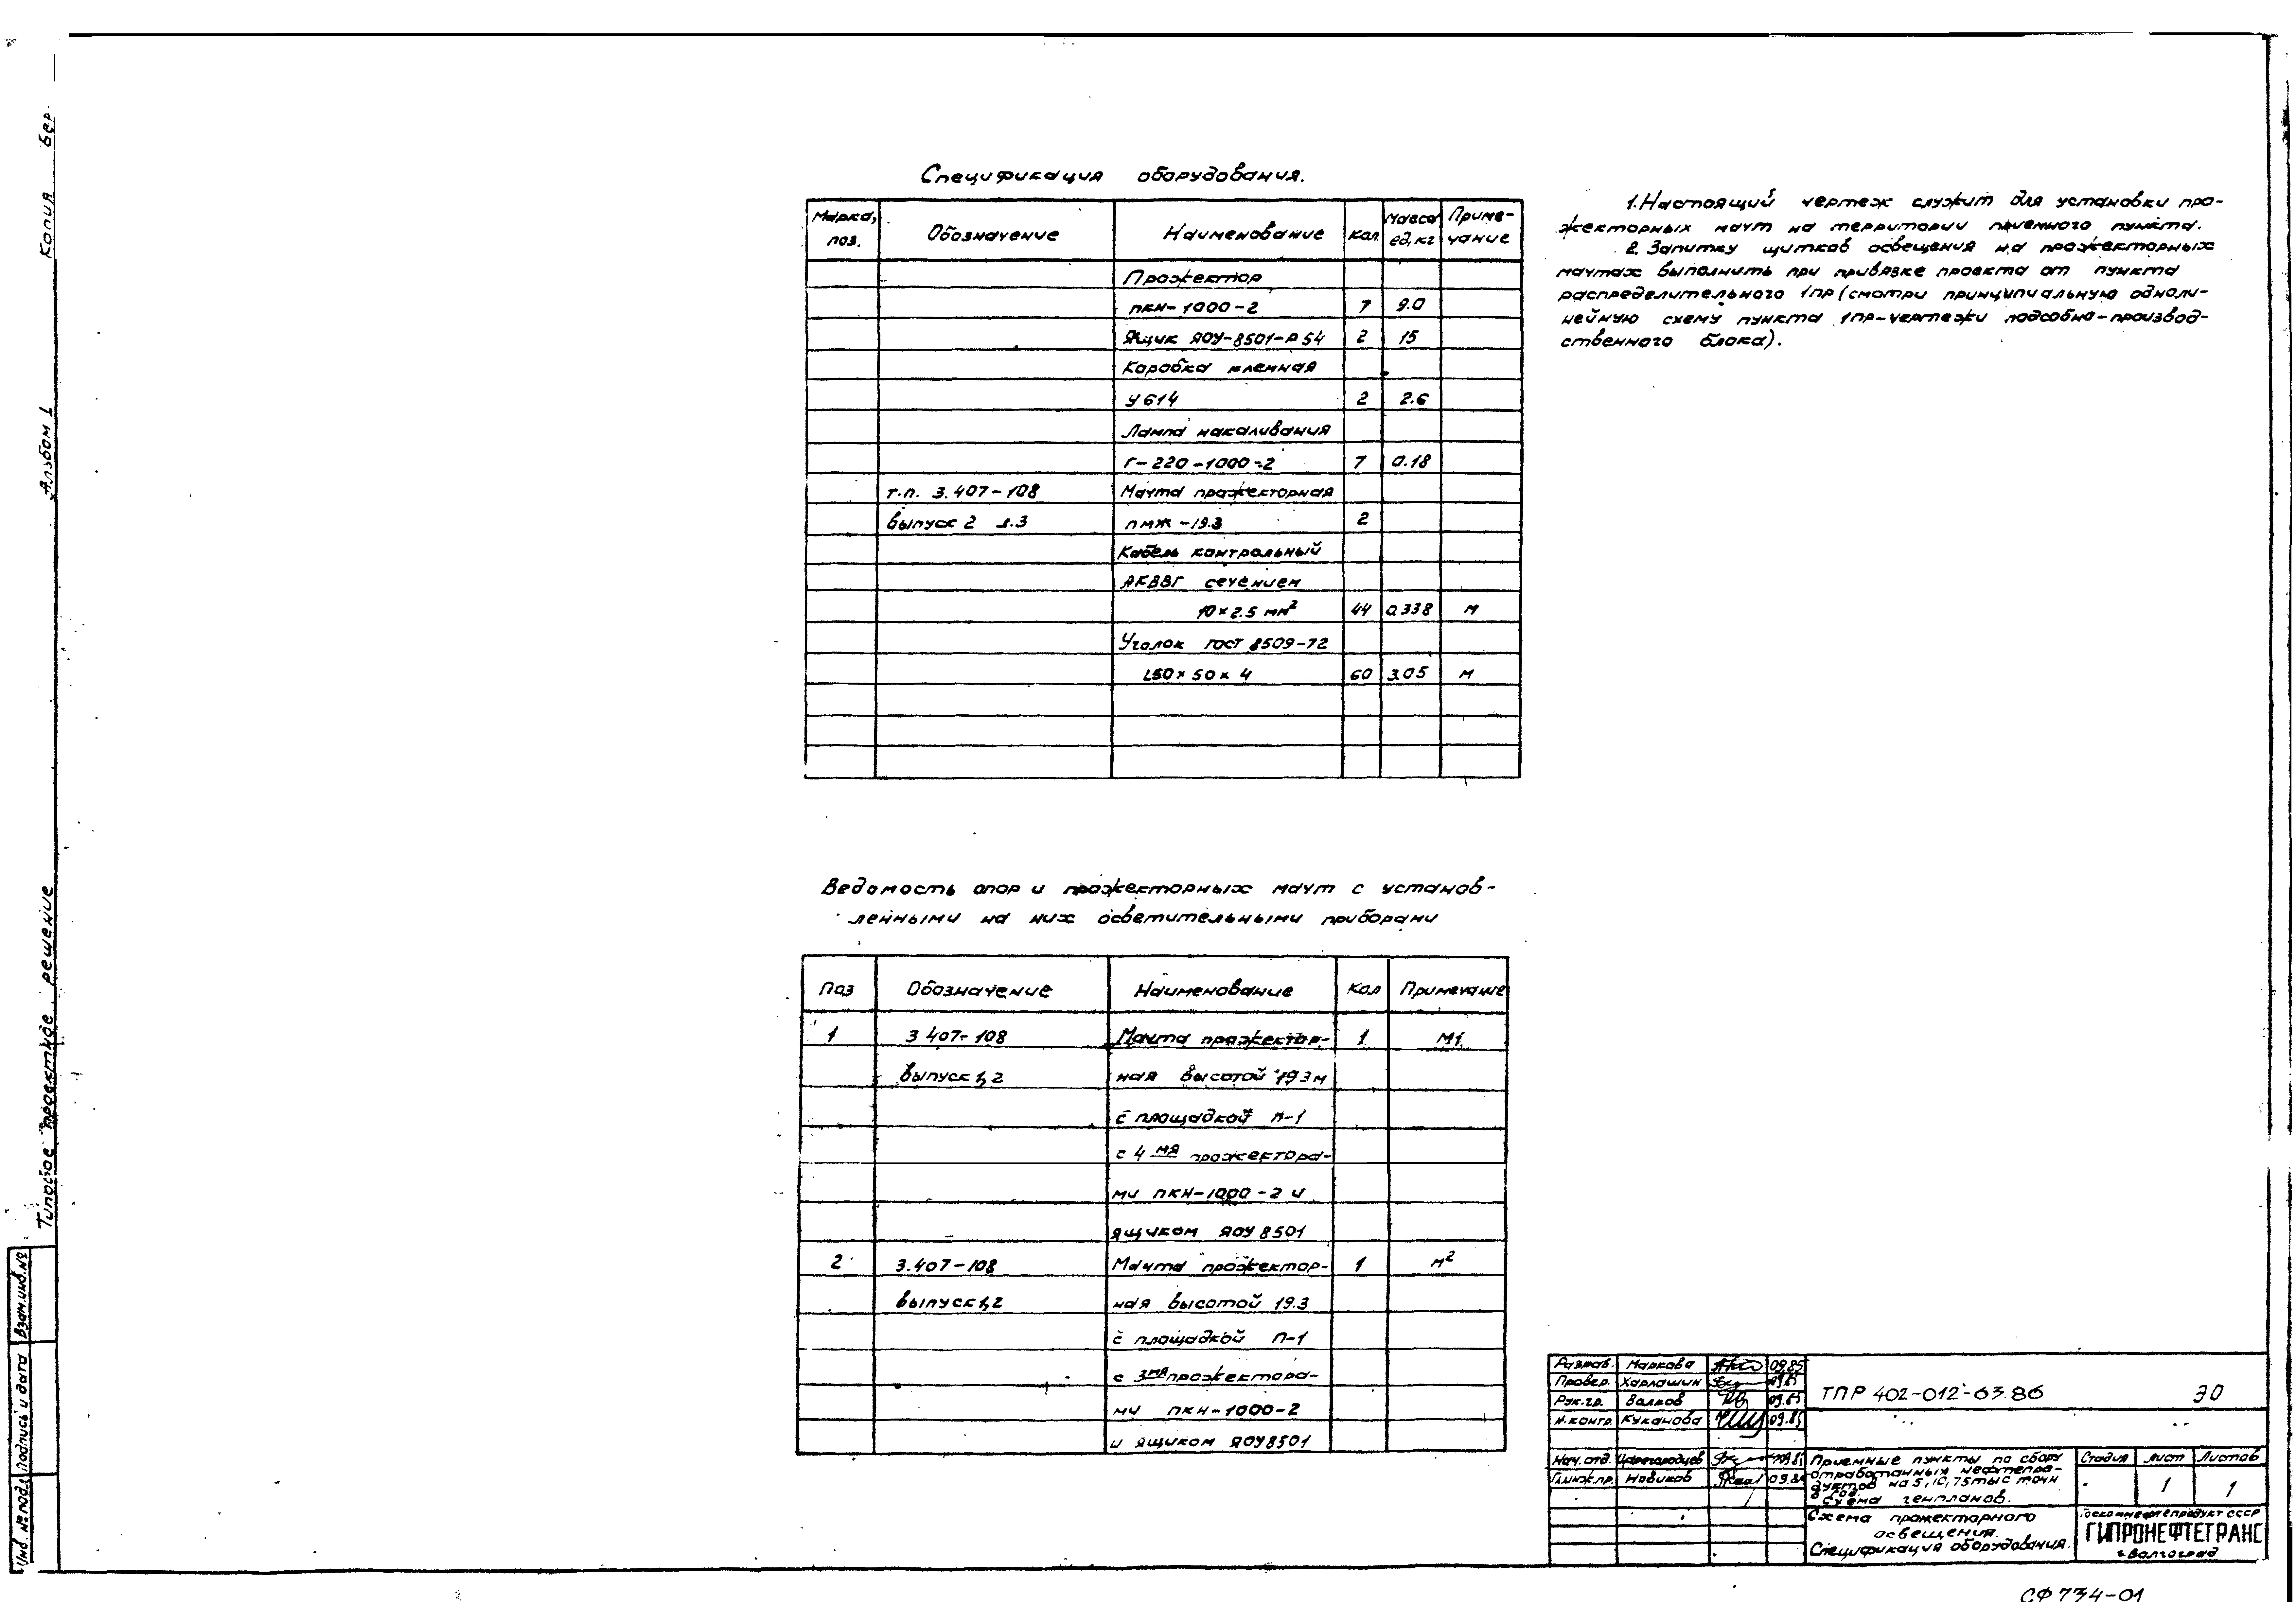 Копия Бер
Альбом 1
Типовое проектное решение
Взам.инв.№
Подпись и дата
Инв. № подл
Спецификация оборудования.
Марка, поз. Обозначение Наименование Кол Масса ед, кг Приме-чание
Прожектор
ПКН-1000-2 7 9.0
Ящик ЯОУ-8501-Р54 2 15
Коробка клемная
У614 2 2.6
Лампа накаливания
Г-220-1000-2 7 0.18
т.п. 3.407-108 Мачта прожекторная
выпуск 2 л.3 ПМЖ-19.3 2
Кабель контрольный
АКВВГ сечением
10×2.5 мм² 44 0.338 м
Уголок ГОСТ 8509-72
L50×50×4 60 3.05 м
1. Настоящий чертеж служит для установки про-
жекторных мачт на территории приемного пункта.
2. Запитку щитков освещения на прожекторных
мачтах выполнить при привязке проекта от пункта
распределительного 1пр (смотри принципиальную одноли-
нейную схему пункта 1пр-чертежи подсобно-производ-
ственного блока).
Ведомость опор и прожекторных мачт с установ-
ленными на них осветительными приборами
Поз Обозначение Наименование Кол Примечание
1 3 407-108 Мачта прожектор- 1 М1
выпуск 1,2 ная высотой 19.3м
с площадкой П-1
с 4 мя прожектора-
ми ПКН-1000-2 и
ящиком ЯОУ8501
2 3.407-108 Мачта прожектор- 1 М2
выпуск 1,2 ная высотой 19.3
с площадкой П-1
с 3мя прожектора-
ми ПКН-1000-2
и ящиком ЯОУ8501
Разраб. Маркова 09.85
Провер. Харлашин 09.85
Рук.гр. Волков 09.85
Н.контр. Куканова 09.85
Нач.отд. Царегородцев 09.85
Гл.инж.пр. Новиков 09.85
ТПР 402-012-63.86 ЭО
Приемные пункты по сбору
отработанных нефтепро-
дуктов на 5, 10, 75тыс тонн
в год.
Схема генпланов.
Стадия Лист Листов
1 1
Схема прожекторного
освещения.
Спецификация оборудования.
Госкомнефтепродукт СССР
ГИПРОНЕФТЕТРАНС
г. Волгоград
СФ 734-01